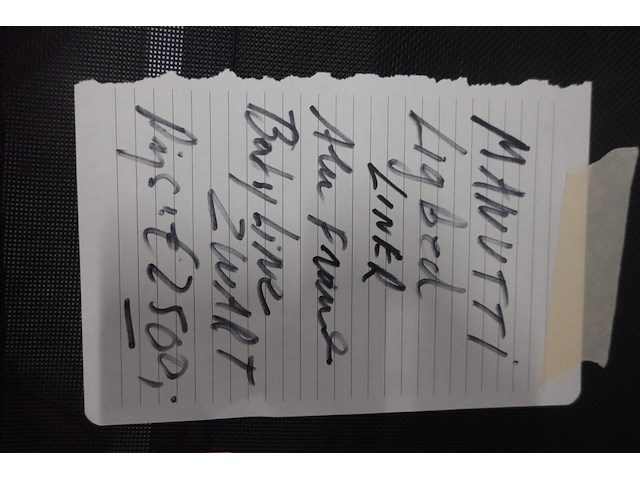 MANUTTI
Ligbed
LINER
Alu Frame
Batyline
ZWART
Prijs: € 2500,-